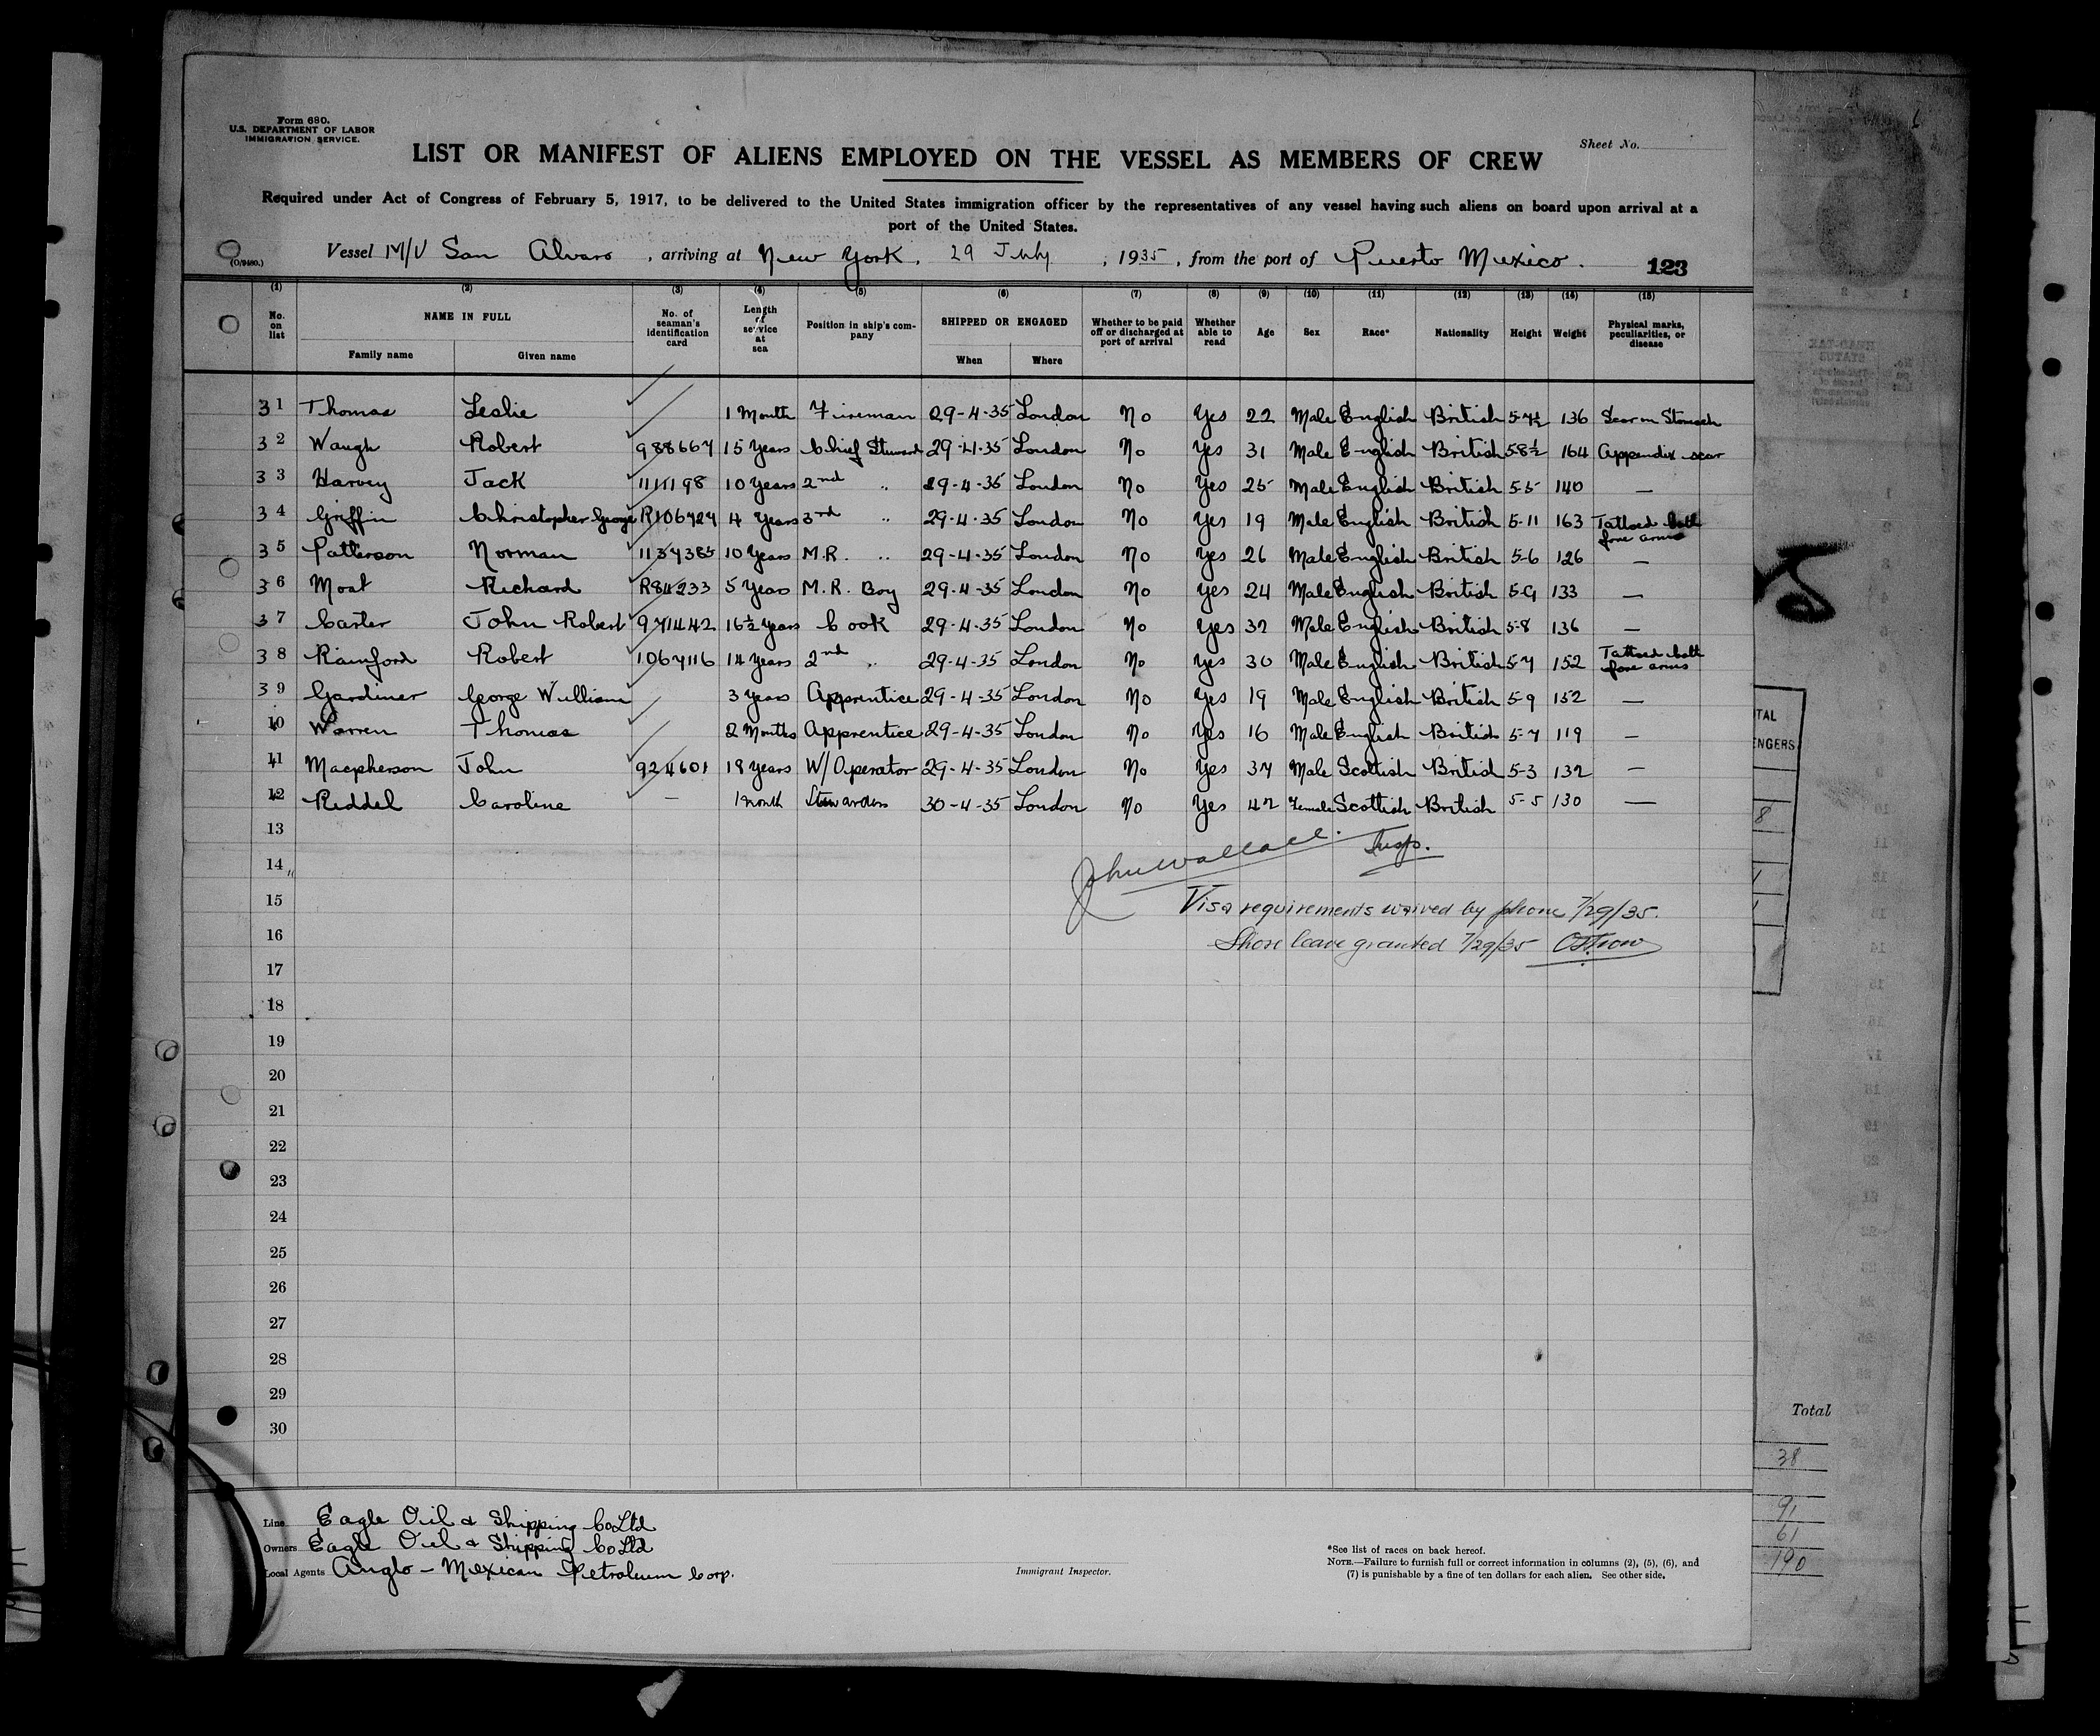 Form 680.
U.S. DEPARTMENT OF LABOR
IMMIGRATION SERVICE.
Sheet No.
LIST OR MANIFEST OF ALIENS EMPLOYED ON THE VESSEL AS MEMBERS OF CREW
Required under Act of Congress of February 5, 1917, to be delivered to the United States immigration officer by the representatives of any vessel having such aliens on board upon arrival at a
port of the United States.
Vessel M/V San Alvaro, arriving at New York, 29 July, 1935, from the port of Puerto Mexico. 123
(1) (2) (3) (4) (5) (6) (7) (8) (9) (10) (11) (12) (13) (14) (15)
No. on list NAME IN FULL Family name Given name No. of seaman's identification card Length of service at sea Position in ship's company SHIPPED OR ENGAGED When Where Whether to be paid off or discharged at port of arrival Whether able to read Age Sex Race* Nationality Height Weight Physical marks, peculiarities, or disease
31 Thomas Leslie 1 Month Fireman 29-4-35 London No Yes 22 Male English British 5-7½ 136 Scar on Stomach
32 Waugh Robert 988667 15 Years Chief Steward 29-4-35 London No Yes 31 Male English British 5-8½ 164 Appendix scar
33 Harvey Jack 1111198 10 Years 2nd " 29-4-35 London No Yes 25 Male English British 5-5 140 —
34 Griffin Christopher George R106727 4 Years 3rd " 29-4-35 London No Yes 19 Male English British 5-11 163 Tattoed both fore arms
35 Patterson Norman 1137385 10 Years M.R. " 29-4-35 London No Yes 26 Male English British 5-6 126 —
36 Moat Richard R84233 5 Years M.R. Boy 29-4-35 London No Yes 24 Male English British 5-9 133 —
37 Carter John Robert 971442 16½ Years Cook 29-4-35 London No Yes 32 Male English British 5-8 136 —
38 Rainford Robert 1067116 14 Years 2nd " 29-4-35 London No Yes 30 Male English British 5-7 152 Tattoed both fore arms
39 Gardiner George William 3 Years Apprentice 29-4-35 London No Yes 19 Male English British 5-9 152 —
10 Warren Thomas 2 Months Apprentice 29-4-35 London No Yes 16 Male English British 5-7 119 —
11 Macpherson John 924601 18 Years W/Operator 29-4-35 London No Yes 37 Male Scottish British 5-3 132 —
12 Riddel Caroline — 1 month Stewardess 30-4-35 London No Yes 42 Female Scottish British 5-5 130 —
13
John Wallace. Insp.
14
15 Visa requirements waived by phone 7/29/35.
16 Shore leave granted 7/29/35 Ostrow
17
18
19
20
21
22
23
24
25
26
27
28
29
30
Line Eagle Oil & Shipping Co Ltd
Owners Eagle Oil & Shipping Co Ltd
Local Agents Anglo-Mexican Petroleum Corp.
Immigrant Inspector.
*See list of races on back hereof.
NOTE.—Failure to furnish full or correct information in columns (2), (5), (6), and
(7) is punishable by a fine of ten dollars for each alien. See other side.
Total
38
91
61
190